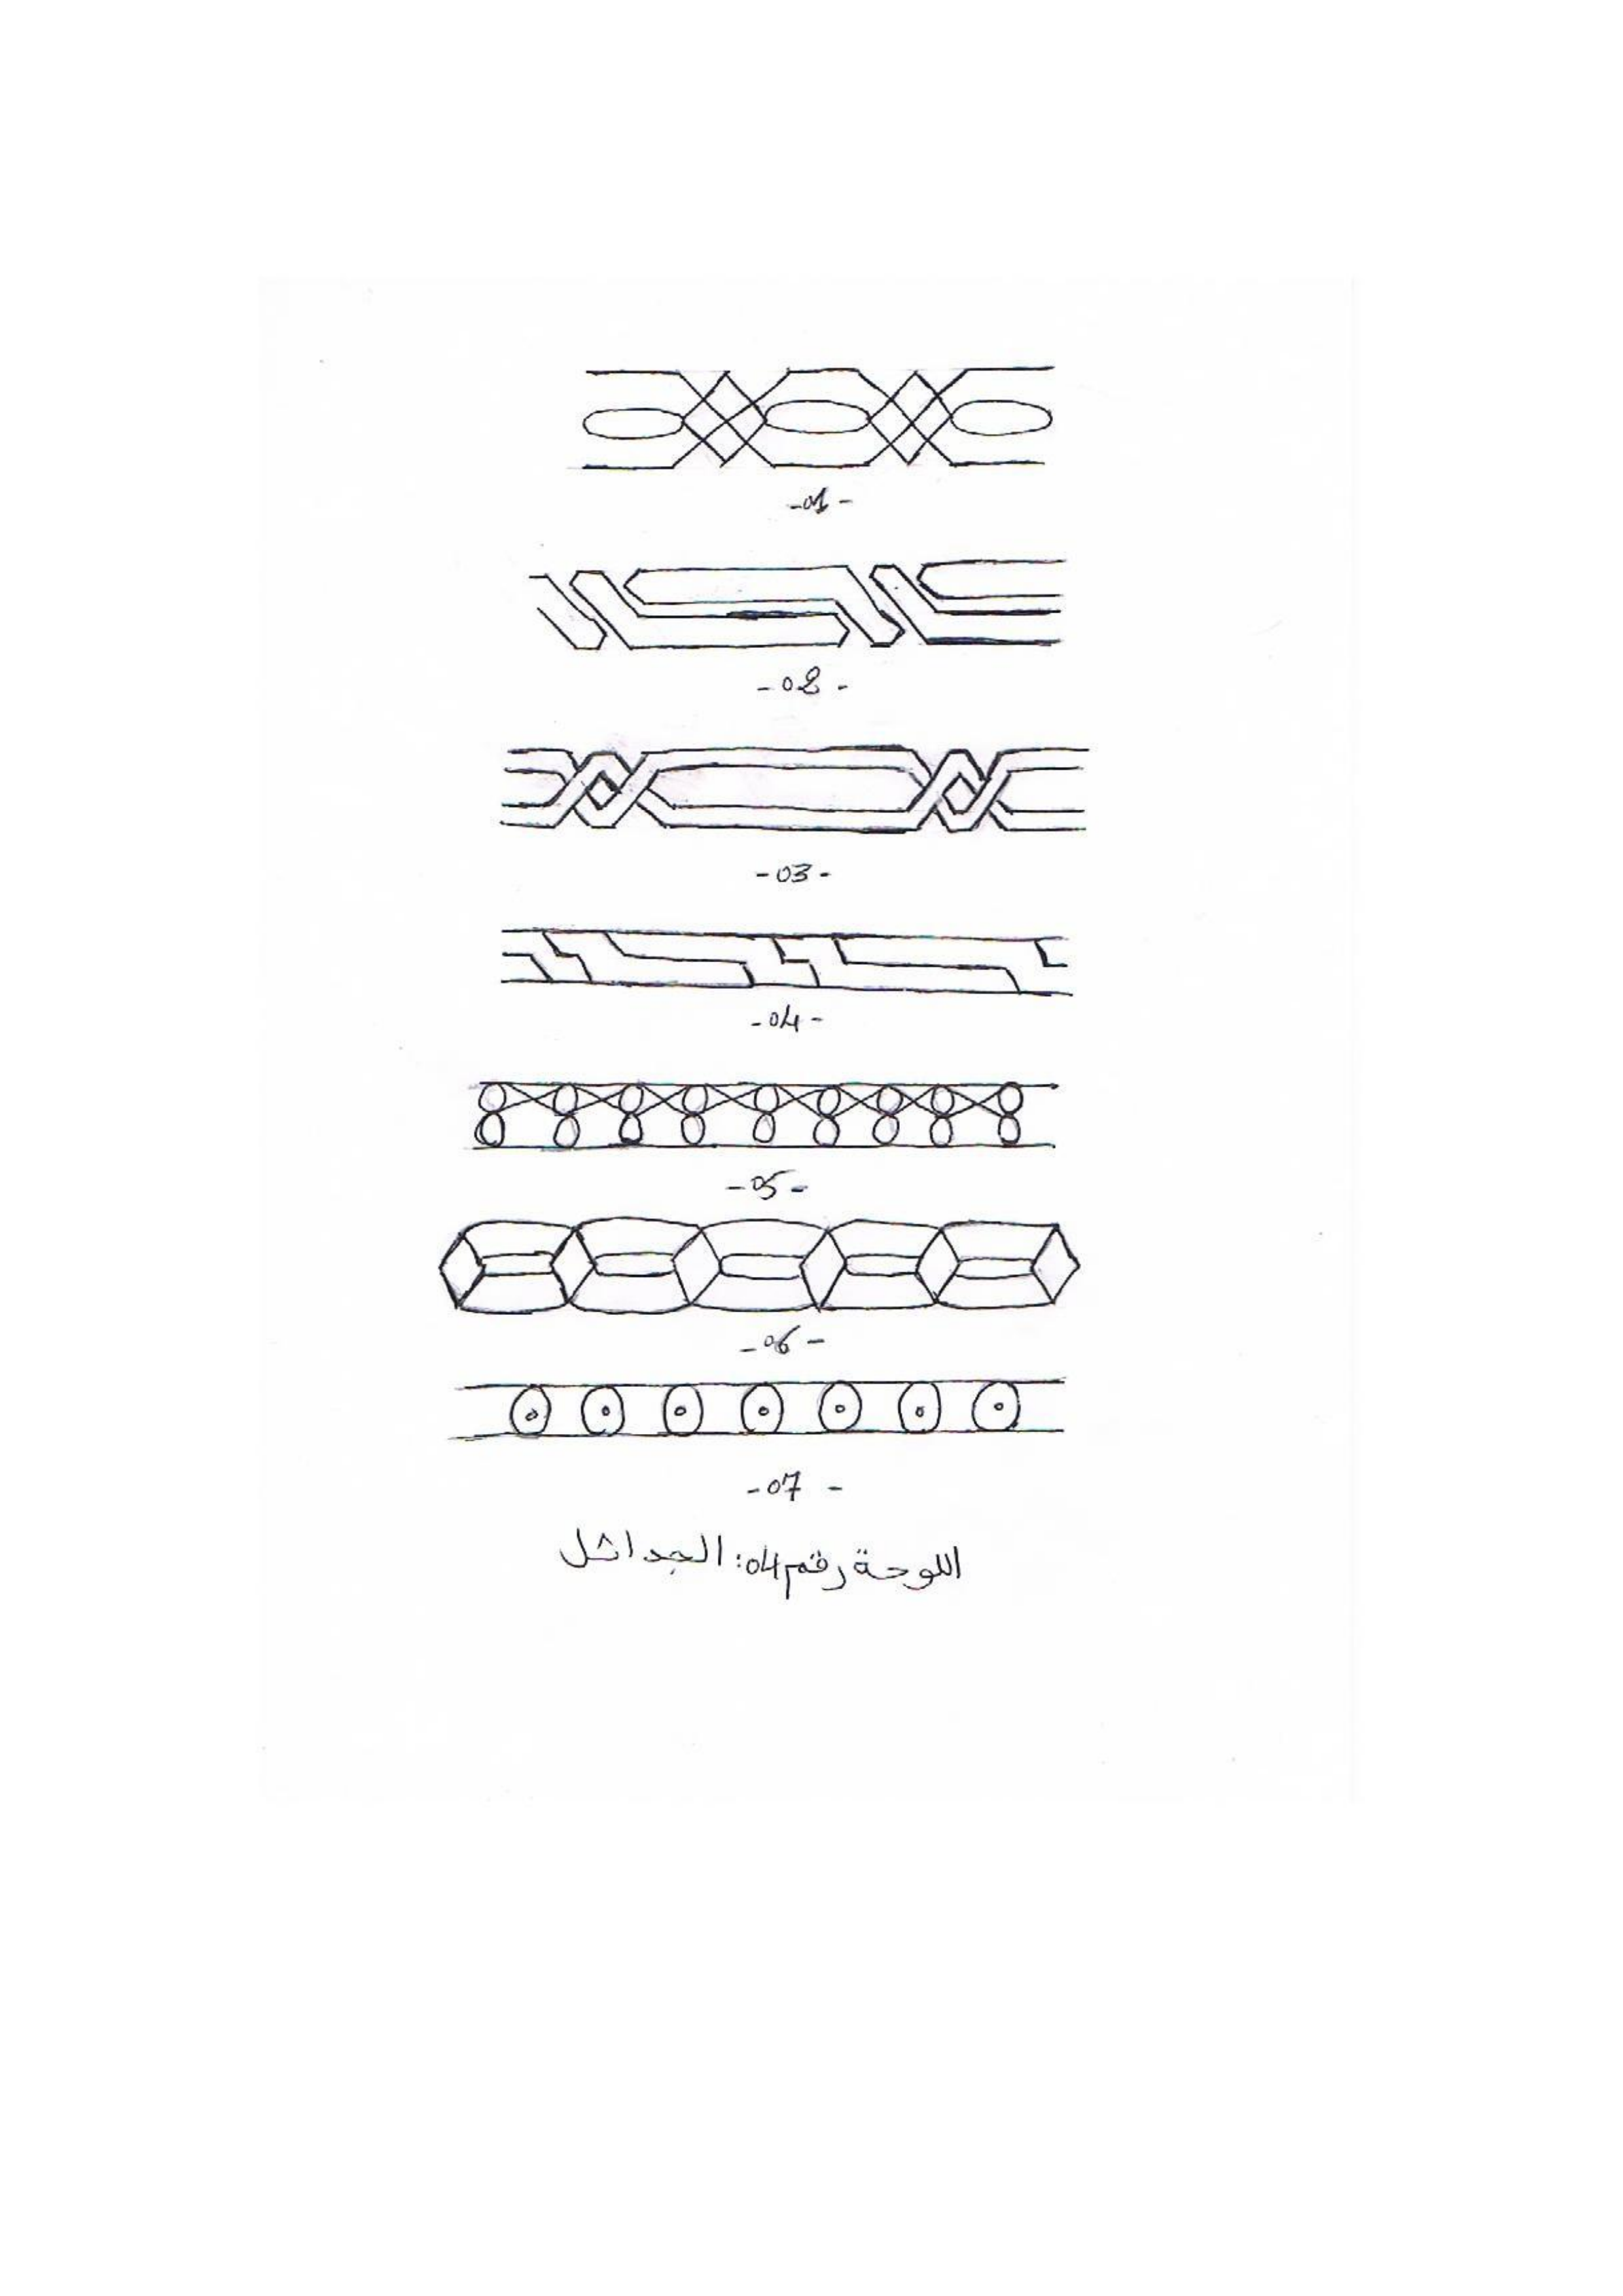 -01-
-02-
-03-
-04-
-05-
-06-
-07-
اللوحة رقم 04: الجدائل